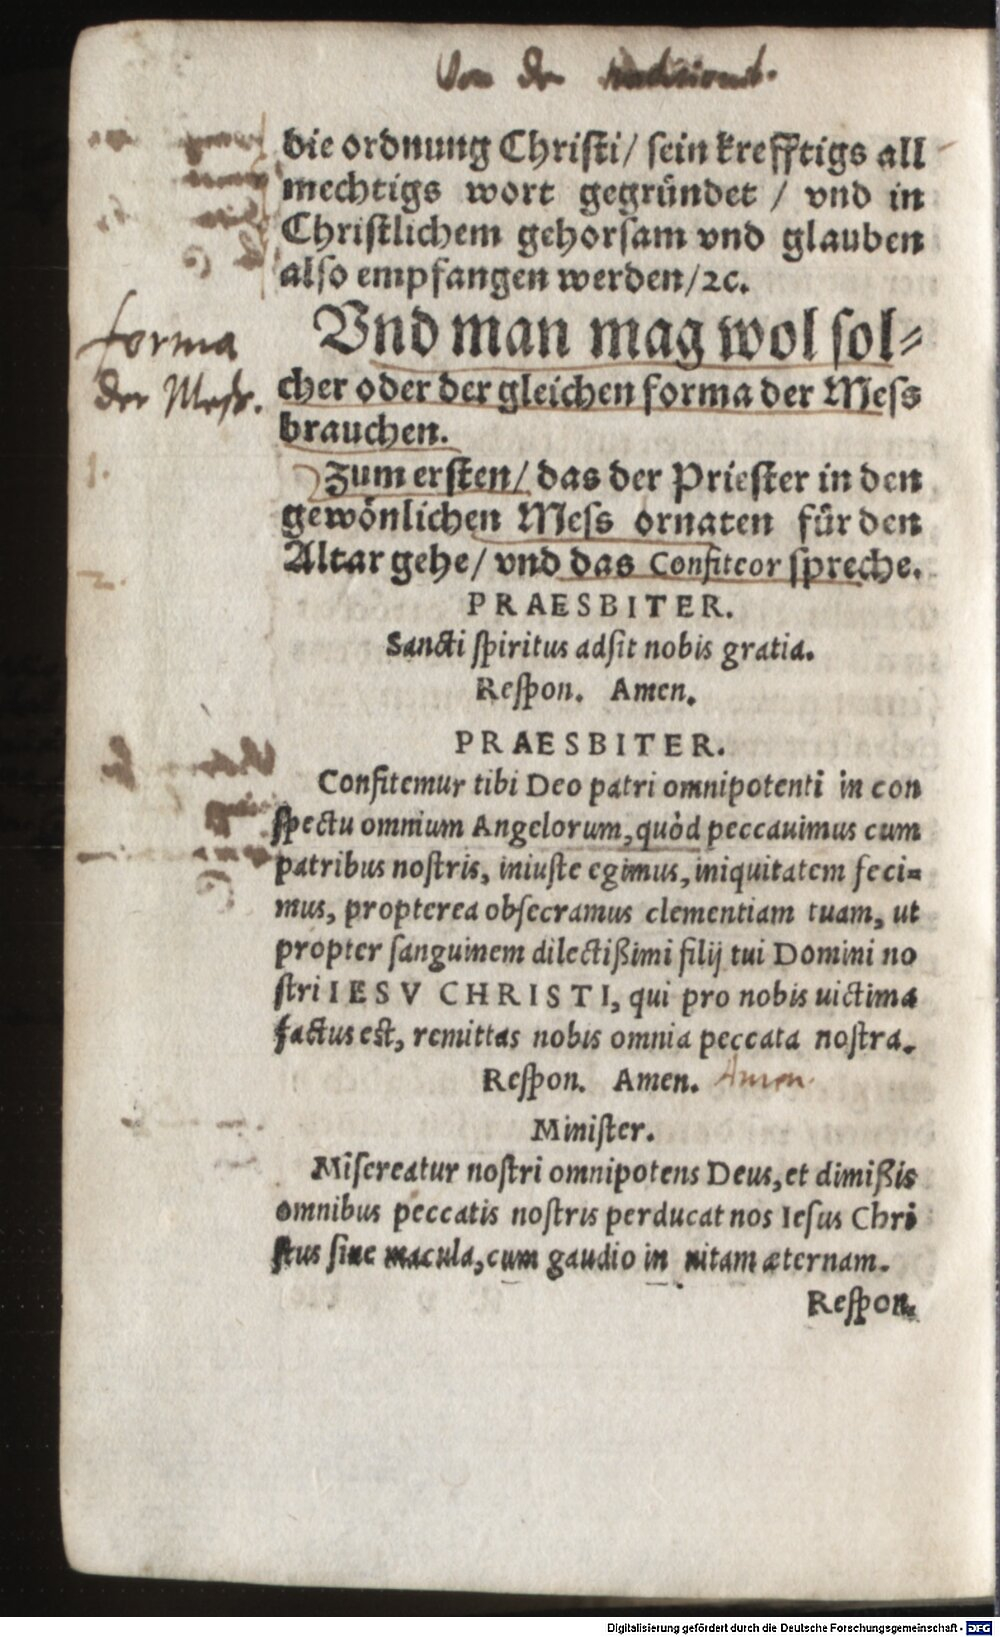 Von der
die ordnung Christi/ sein krefftigs all
mechtigs wort gegründet / vnd in
Christlichem gehorsam vnd glauben
also empfangen werden/ꝛc.
forma
der Mess.
Vnd man mag wol sol⸗
cher oder der gleichen forma der Mess
brauchen.
1.
Zum ersten/ das der Priester in den
gewönlichen Mess ornaten für den
Altar gehe/ vnd das Confiteor spreche.
2.
PRAESBITER.
Sancti spiritus adsit nobis gratia.
Respon. Amen.
PRAESBITER.
Confitemur tibi Deo patri omnipotenti in con
spectu omnium Angelorum, quòd peccauimus cum
patribus nostris, iniuste egimus, iniquitatem feci⸗
mus, propterea obsecramus clementiam tuam, ut
propter sanguinem dilectißimi filij tui Domini no
stri IESV CHRISTI, qui pro nobis uictima
factus est, remittas nobis omnia peccata nostra.
Respon. Amen. Amen.
Minister.
Misereatur nostri omnipotens Deus, et dimißis
omnibus peccatis nostris perducat nos Iesus Chri
stus sine macula, cum gaudio in uitam æternam.
Respon.
Digitalisierung gefördert durch die Deutsche Forschungsgemeinschaft - DFG